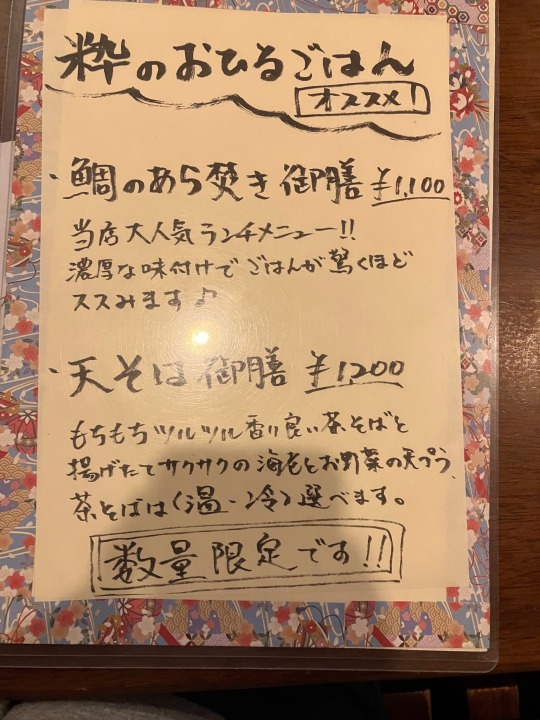 粋のおひるごはん
オススメ!
・鯛のあら焚き御膳 ¥1,100
当店大人気ランチメニュー!!
濃厚な味付けでごはんが驚くほど
ススみます♪
・天そば御膳 ¥1200
もちもちツルツル香り良い茶そばと
揚げたてサクサクの海老とお野菜の天プラ、
茶そばは(温・冷)選べます。
数量限定です!!